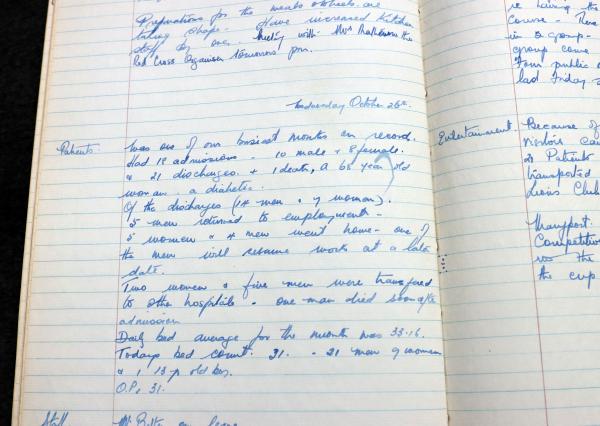 Preparations for the meals on wheels are
taking shape - Have increased kitchen
staff by one. Meeting with Mrs the
Red Cross Organiser tomorrow pm.
Wednesday October 26th.
Patients. Was one of our busiest months on record.
Had 18 admissions - 10 male & 8 female.
& 21 discharges. & 1 death, a 68 year old
woman - a diabetic.
Of the discharges (14 men & 7 women).
5 men returned to employment -
5 women & 4 men went home - one of
the men will resume work at a later
date.
Two women & five men were transfered
to other hospitals - one man died soon after
admission
Daily bed average for the month was 33.16.
Todays bed count. 31. - 21 men 9 women
& 1 13 y old boy.
O.Ps 31.
Staff Mr on leave
is having the
course -
in a group -
group come
Four public
last Friday
Entertainment. Because of
visitors
Patients
transported
Lions Club
Transport:
Competitive
the
the cup